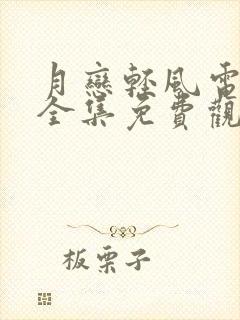 月戀輕風電
全集免費觀
板栗子